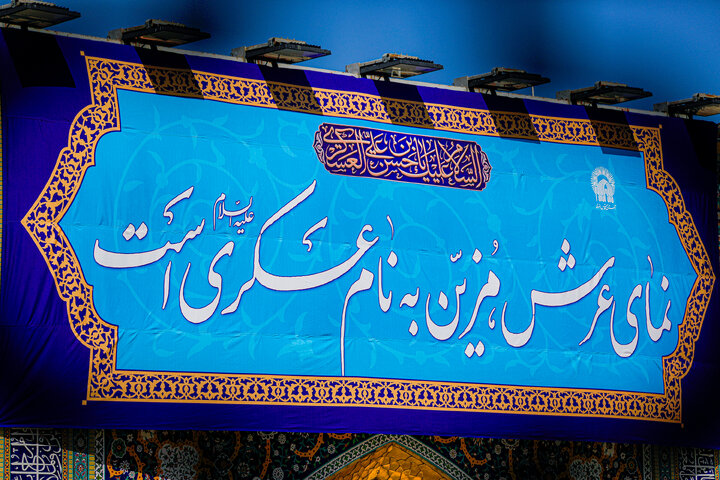 السلام علیک یا حسن بن علی العسکری
نمای عرش مزیّن به نام عسکری علیه السلام است